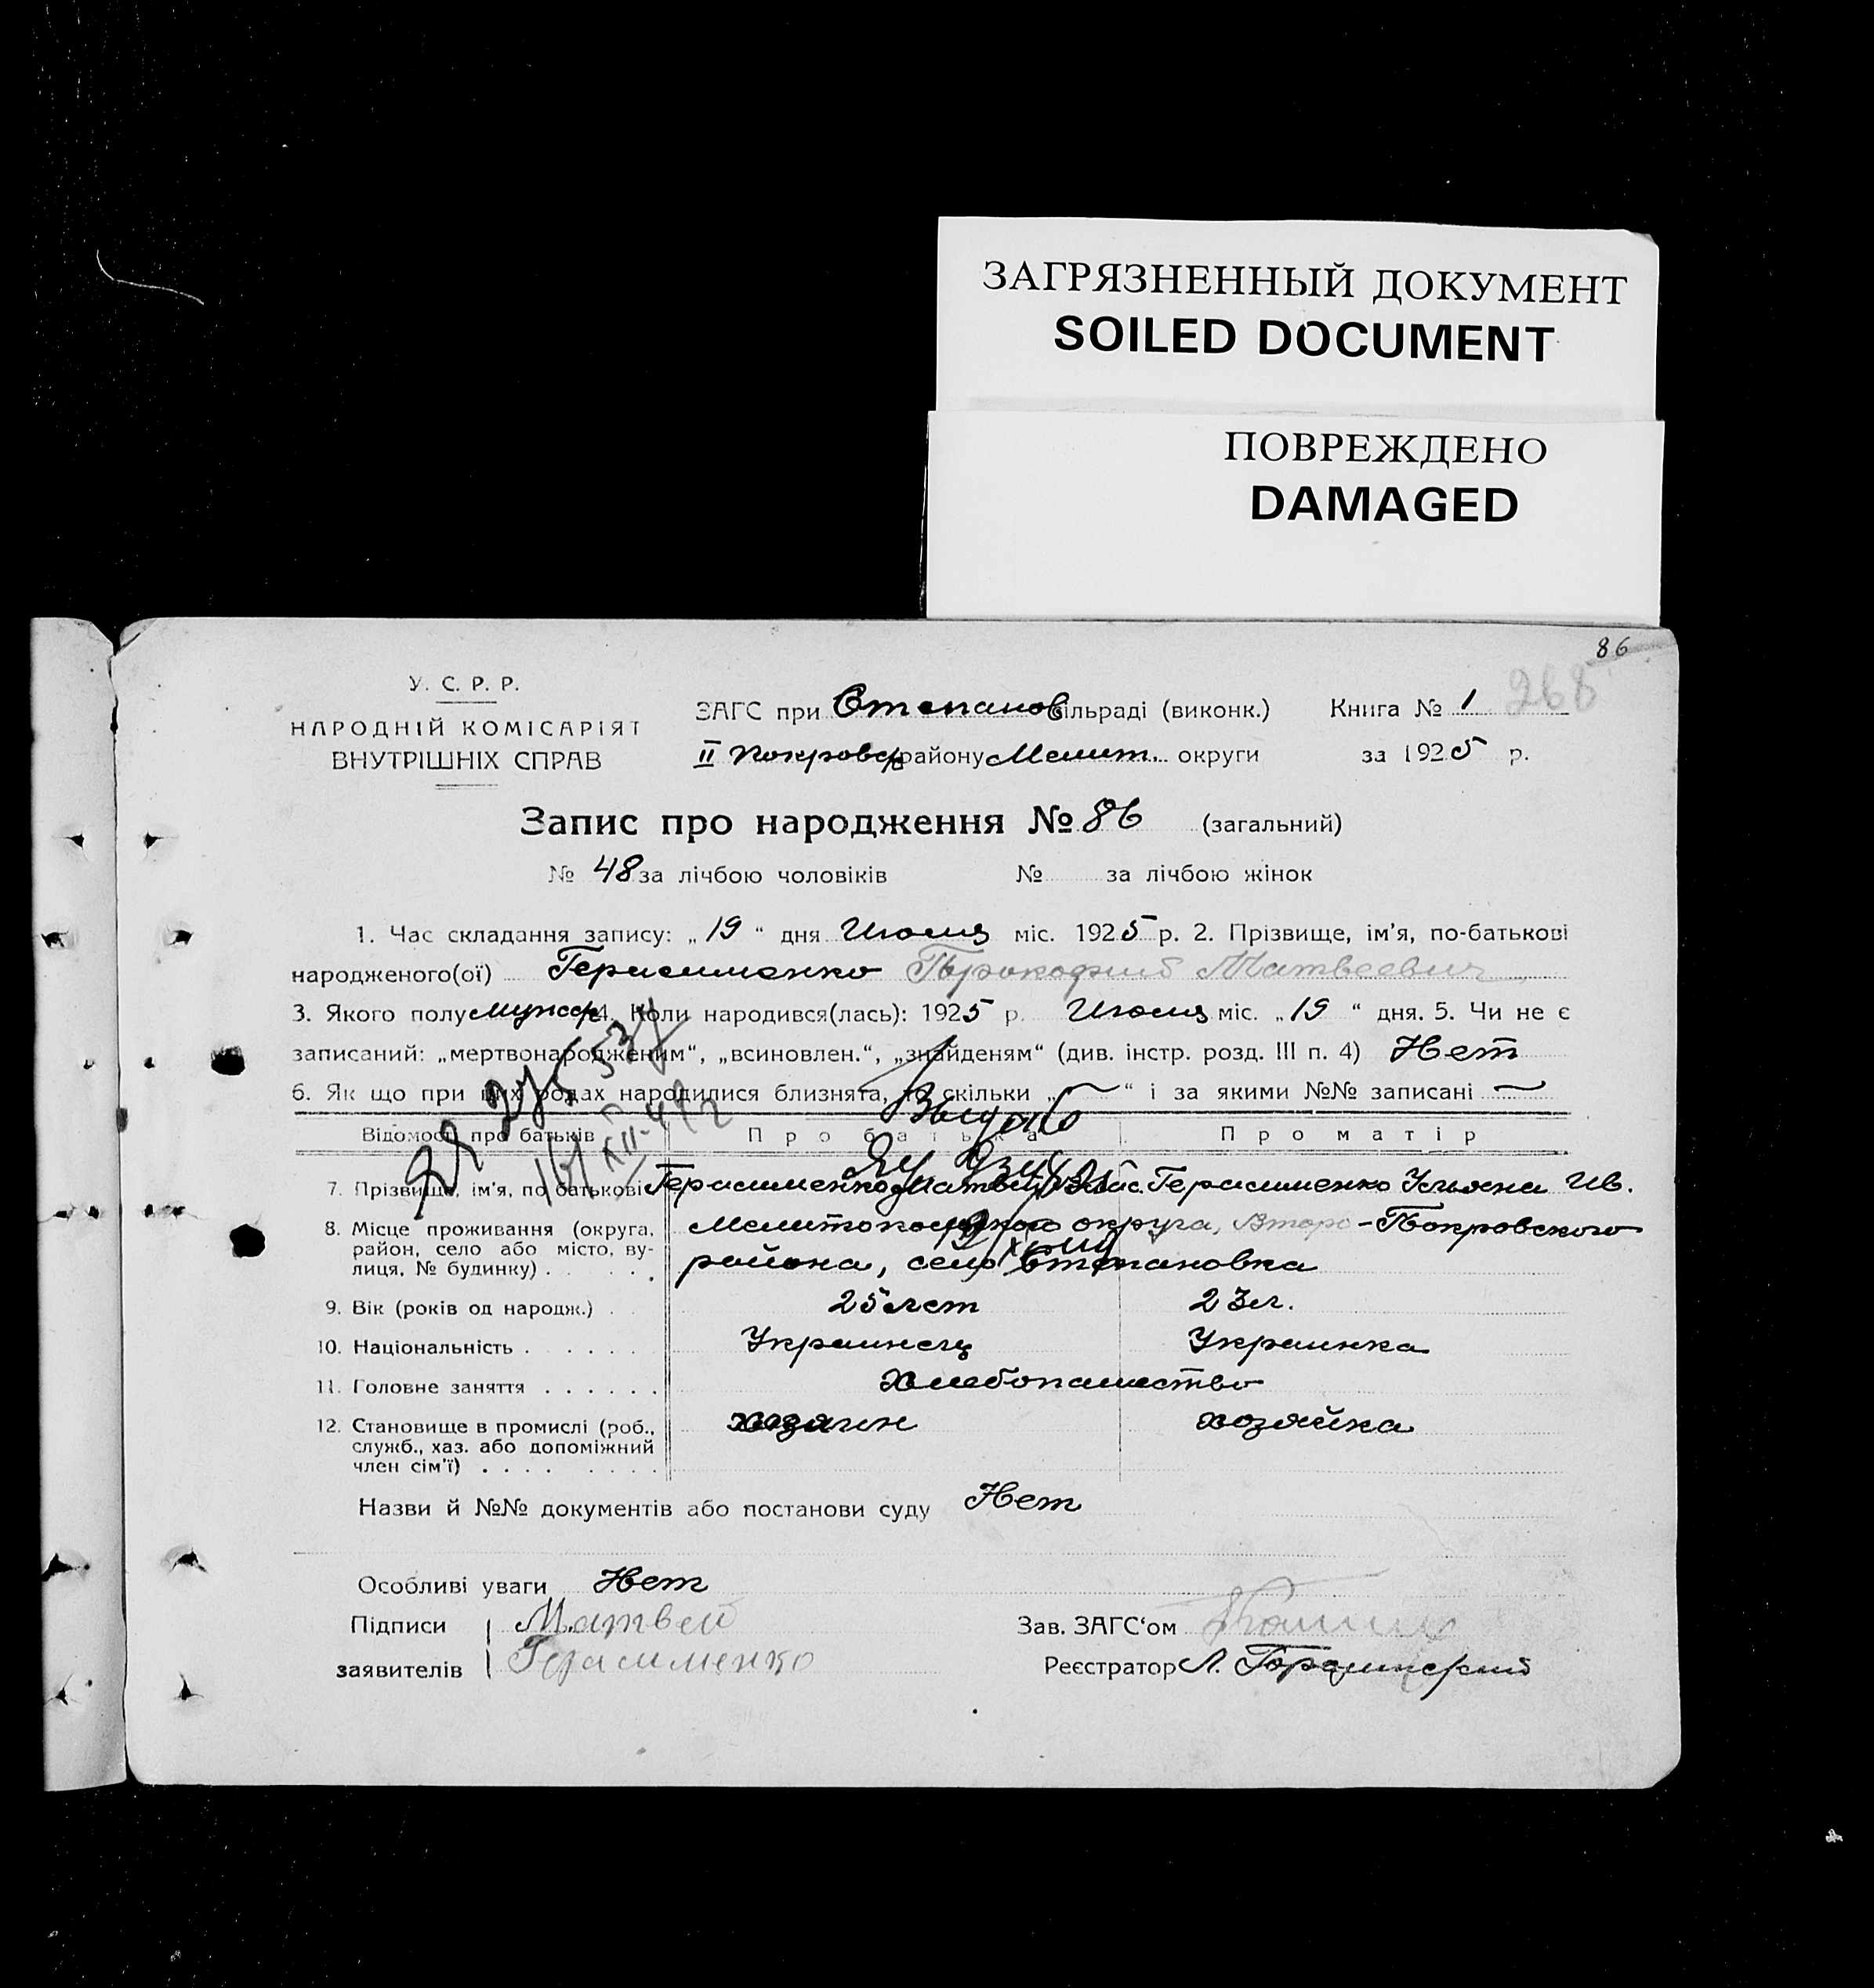 ЗАГРЯЗНЕННЫЙ ДОКУМЕНТ
SOILED DOCUMENT
ПОВРЕЖДЕНО
DAMAGED
86
268
У. С. Р. Р.
НАРОДНІЙ КОМІСАРІЯТ
ВНУТРІШНІХ СПРАВ
ЗАГС при Степанов сільраді (виконк.) Книга № 1
II Покровск району Мелит. округи за 1925 р.
Запис про народження № 86 (загальний)
№ 48 за лічбою чоловіків № за лічбою жінок
1. Час складання запису: „19“ дня Июля міс. 1925 р. 2. Прізвище, ім’я, по-батькові
народженого(ої) Герасименко Прокофий Матвеевич
3. Якого полу мужск 4. Коли народився(лась): 1925 р. Июля міс. „19“ дня. 5. Чи не є
записаний: „мертвонародженим“, „всиновлен.“, „знайденям“ (див. інстр. розд. III п. 4) Нет
6. Як що при цих родах народилися близнята, то скільки „—“ і за якими №№ записані —
Відомості про батьків Про батька Про матір
7. Прізвище, ім’я, по батькові Герасименко Матвей Герасименко Ульяна Ив.
8. Місце проживання (округа, район, село або місто, вулиця, № будинку) Мелитопольского округа, Второ-Покровского
района, село Степановка
9. Вік (років од народж.) 25 лет 23 л.
10. Національність Украинец Украинка
11. Головне заняття Хлебопашество
12. Становище в промислі (роб., служб., хаз. або допоміжний член сім’ї) хозяин хозяйка
Назви й №№ документів або постанови суду Нет
Особливі уваги Нет
Підписи Матвей Зав. ЗАГС‘ом
заявителів Герасименко Реєстратор Л.